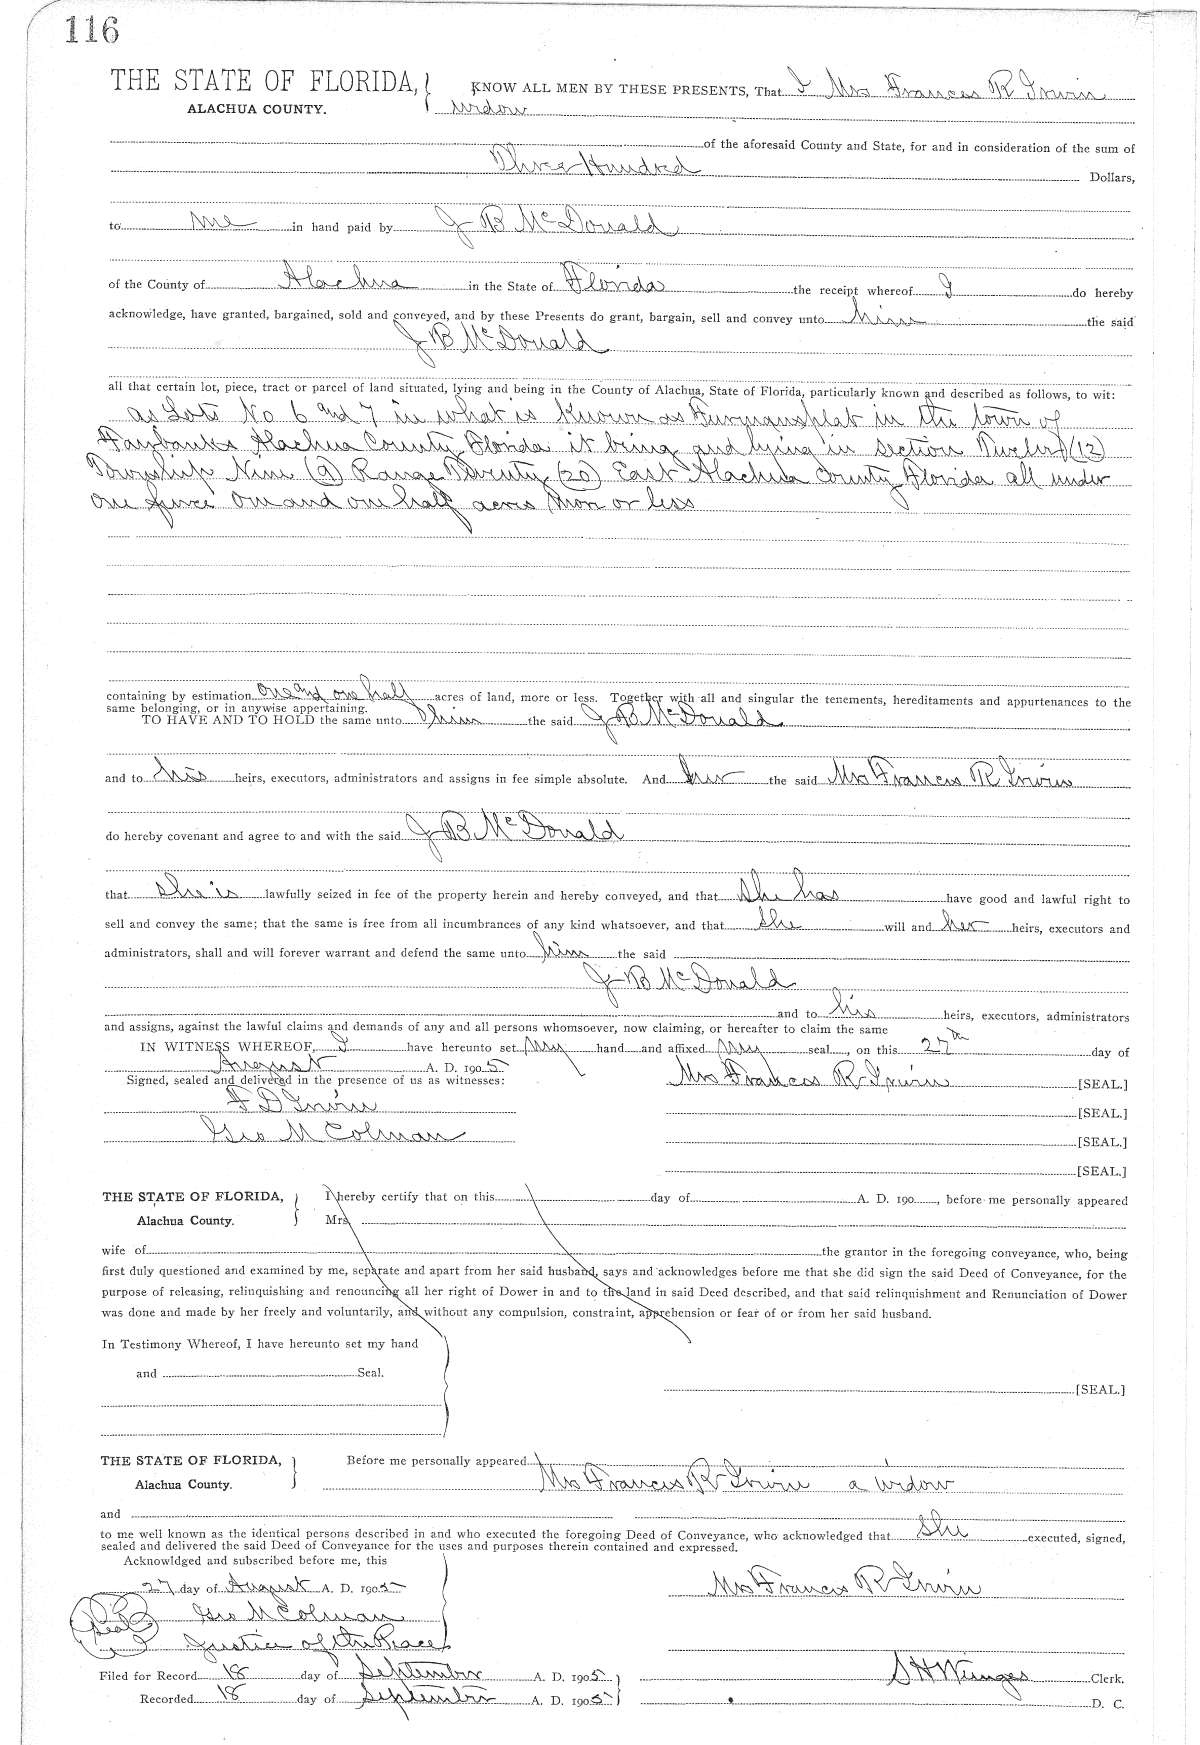 116
THE STATE OF FLORIDA, KNOW ALL MEN BY THESE PRESENTS, That I Mrs Frances R Irwin
ALACHUA COUNTY. widow
of the aforesaid County and State, for and in consideration of the sum of
Three Hundred Dollars,
to me in hand paid by J B McDonald
of the County of Alachua in the State of Florida the receipt whereof I do hereby
acknowledge, have granted, bargained, sold and conveyed, and by these Presents do grant, bargain, sell and convey unto him the said
J B McDonald
all that certain lot, piece, tract or parcel of land situated, lying and being in the County of Alachua, State of Florida, particularly known and described as follows, to wit:
as Lots No 6 and 7 in what is known as Furmans plat in the town of
Fairbanks Alachua County Florida it being and lying in section Twelve (12)
Township Nine (9) Range Twenty (20) East Alachua County Florida all under
one fence One and one half acres More or less
containing by estimation one and one half acres of land, more or less. Together with all and singular the tenements, hereditaments and appurtenances to the
same belonging, or in anywise appertaining.
TO HAVE AND TO HOLD the same unto him the said J B McDonald
and to his heirs, executors, administrators and assigns in fee simple absolute. And her the said Mrs Francis R Irwin
do hereby covenant and agree to and with the said J B McDonald
that she is lawfully seized in fee of the property herein and hereby conveyed, and that she has have good and lawful right to
sell and convey the same; that the same is free from all incumbrances of any kind whatsoever, and that she will and her heirs, executors and
administrators, shall and will forever warrant and defend the same unto him the said
J B McDonald
and to his heirs, executors, administrators
and assigns, against the lawful claims and demands of any and all persons whomsoever, now claiming, or hereafter to claim the same
IN WITNESS WHEREOF, I have hereunto set my hand and affixed my seal, on this 27th day of
August A. D. 1905
Signed, sealed and delivered in the presence of us as witnesses: Mrs Francis R Irwin [SEAL.]
F D Irwin [SEAL.]
Geo M Colman [SEAL.]
[SEAL.]
THE STATE OF FLORIDA, I hereby certify that on this day of A. D. 190 , before me personally appeared
Alachua County. Mrs
wife of the grantor in the foregoing conveyance, who, being
first duly questioned and examined by me, separate and apart from her said husband, says and acknowledges before me that she did sign the said Deed of Conveyance, for the
purpose of releasing, relinquishing and renouncing all her right of Dower in and to the land in said Deed described, and that said relinquishment and Renunciation of Dower
was done and made by her freely and voluntarily, and without any compulsion, constraint, apprehension or fear of or from her said husband.
In Testimony Whereof, I have hereunto set my hand
and Seal.
[SEAL.]
THE STATE OF FLORIDA, Before me personally appeared
Alachua County. Mrs Francis R Irwin a widow
and
to me well known as the identical persons described in and who executed the foregoing Deed of Conveyance, who acknowledged that she executed, signed,
sealed and delivered the said Deed of Conveyance for the uses and purposes therein contained and expressed.
Acknowldged and subscribed before me, this
27 day of August A. D. 1905 Mrs Francis R Irwin
Seal Geo M Colman
Justice of the Peace
Filed for Record 18 day of September A. D. 1905 S H Wienges Clerk.
Recorded 18 day of September A. D. 1905 D. C.